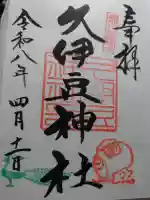 奉拝
久伊豆神社
令和八年四月十一日